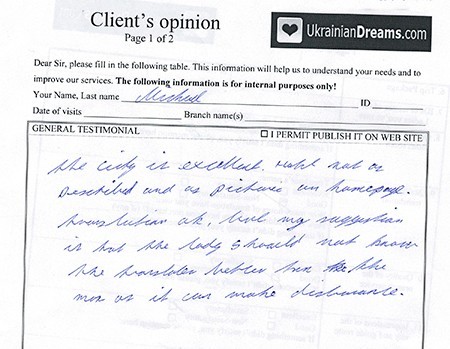 Client's opinion
Page 1 of 2
UkrainianDreams.com
Dear Sir, please fill in the following table. This information will help us to understand your needs and to
improve our services. The following information is for internal purposes only!
Your Name, Last name Michael ID
Date of visits Branch name(s)
GENERAL TESTIMONIAL I PERMIT PUBLISH IT ON WEB SITE
the city is excellent. not as
described and as picture on homepage.
translation ok, but my suggestion
is that the lady should not know
the translator better than the
man as it can make disturbance.